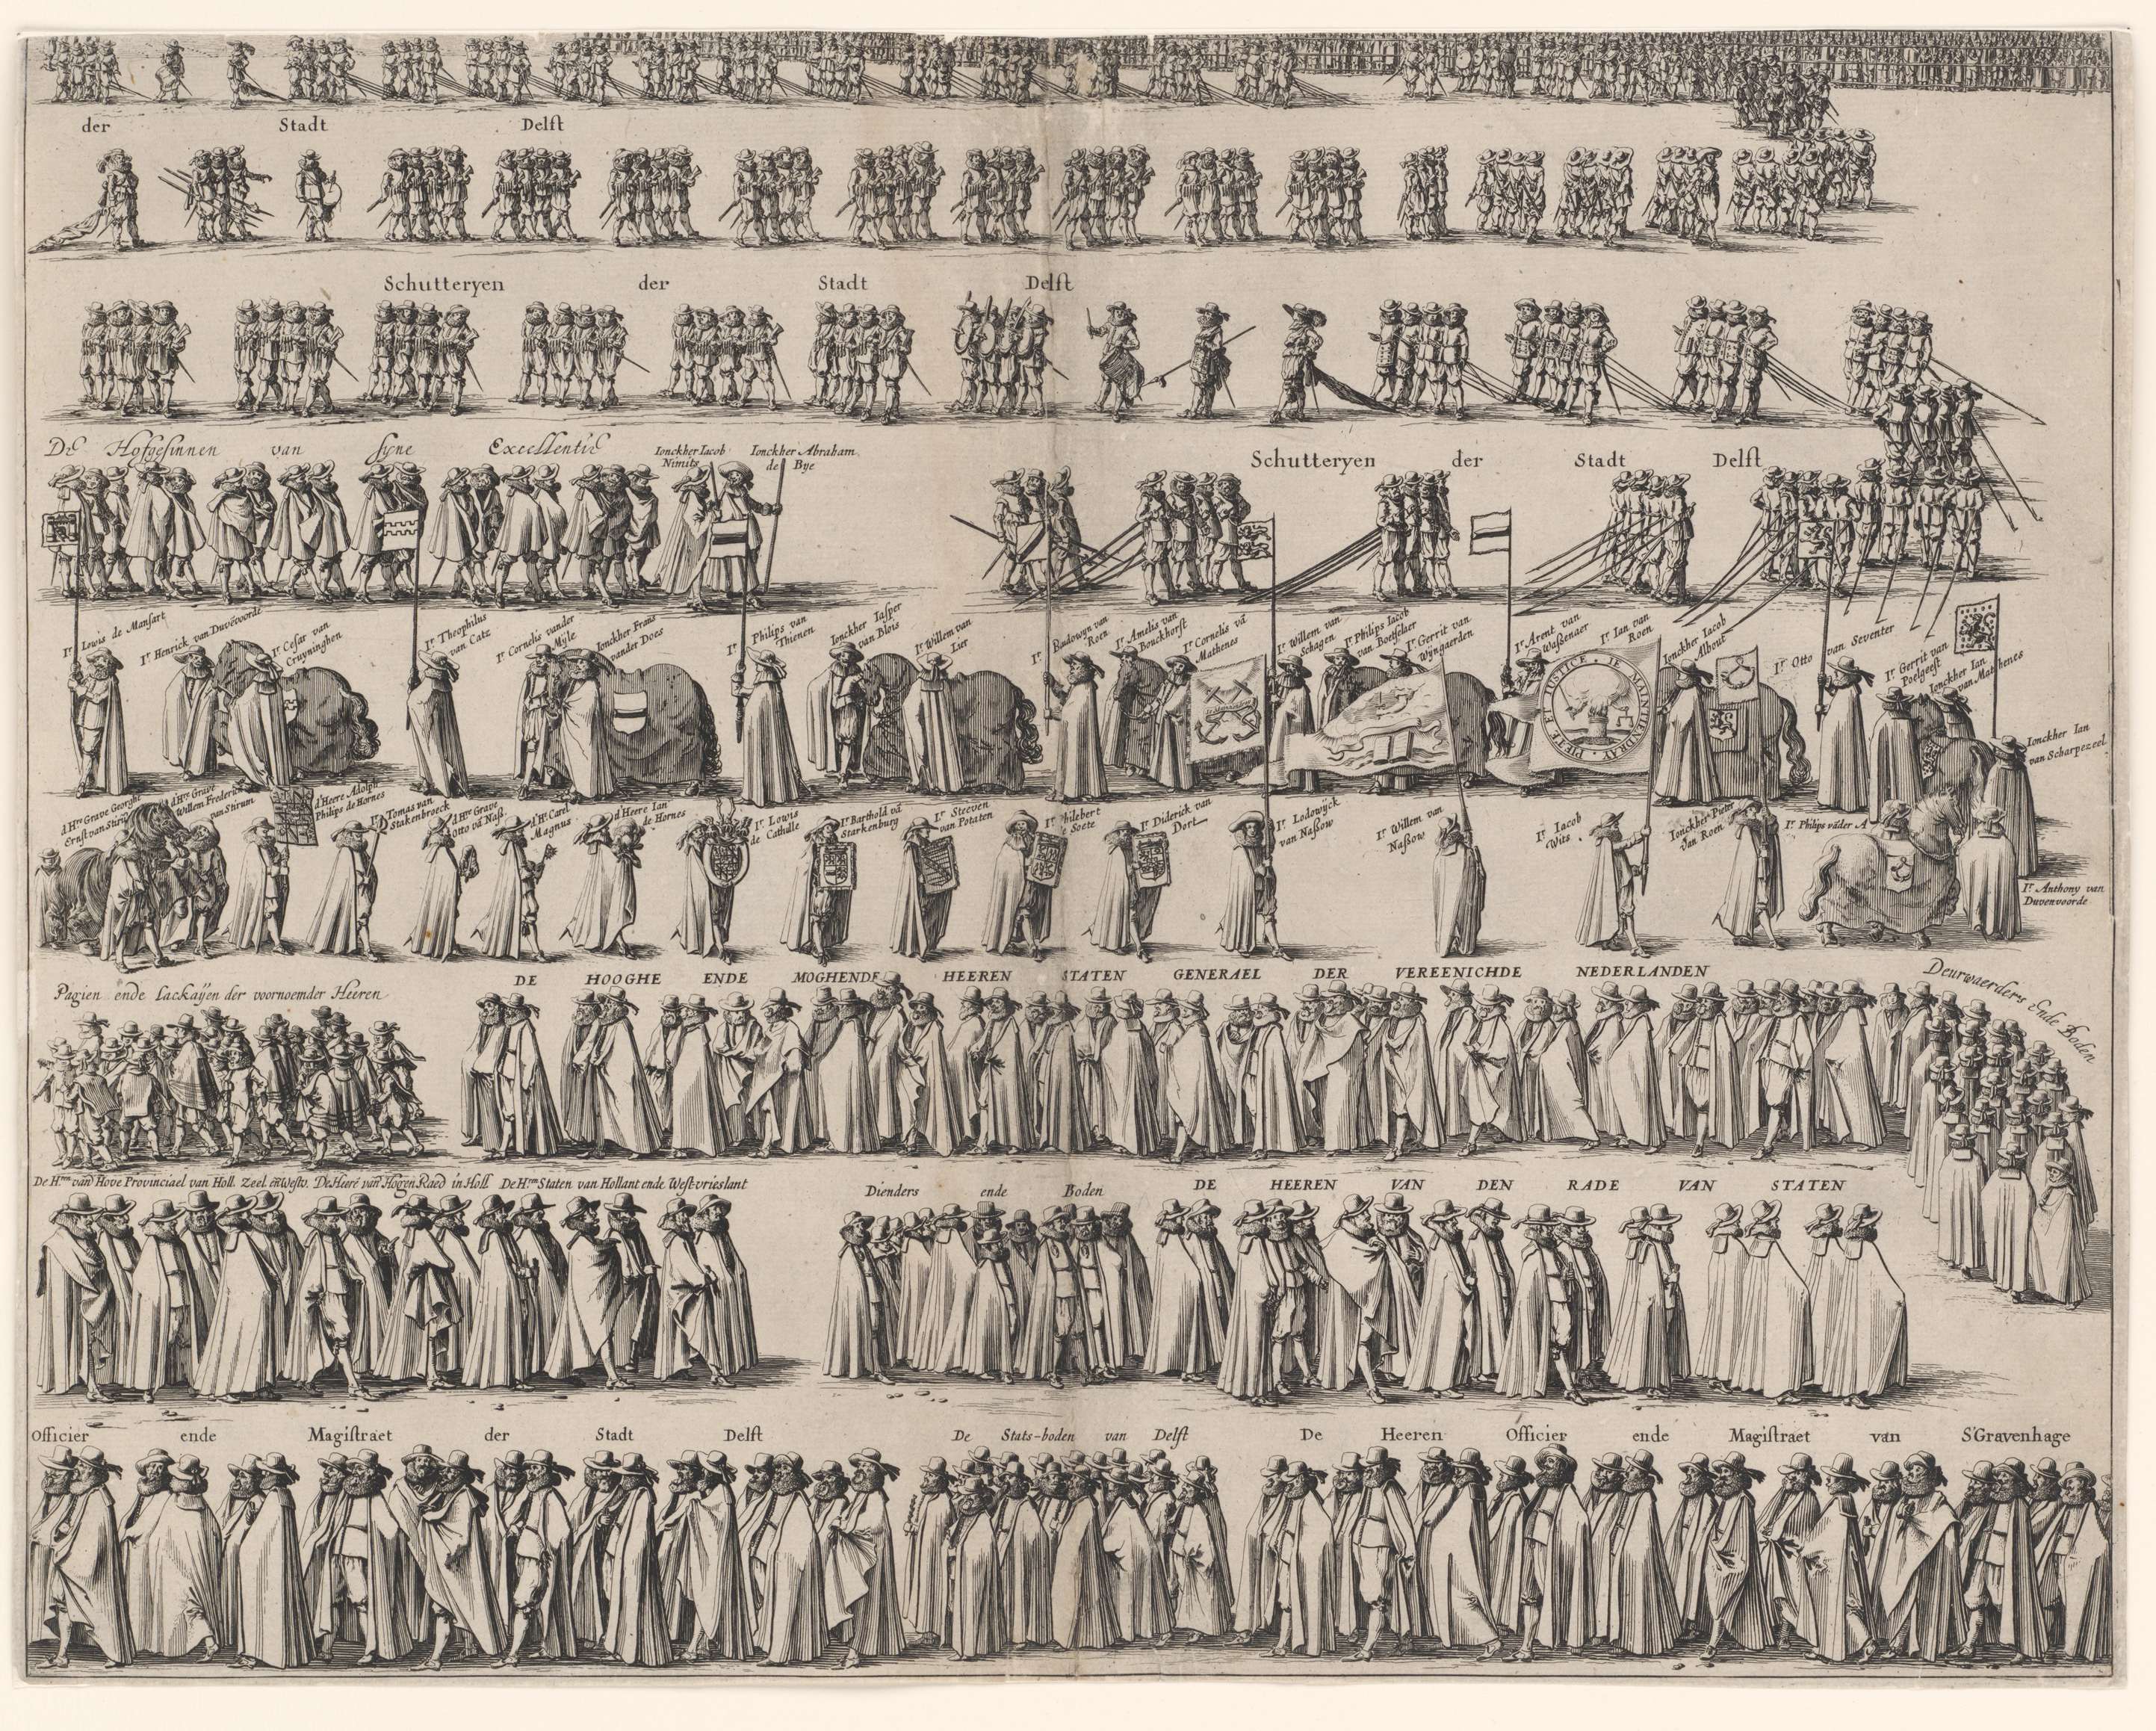 der Stadt Delft
Schutteryen der Stadt Delft
De Hofgesinnen van syne Excellentie
Jonckher Iacob
Nimits
Jonckher Abraham
de Bye
Schutteryen der Stadt Delft
Ir Lowis de Mansart
Ir Henrick van Duvevoorde
Ir Cesar van
Cruyninghen
Ir Theophilus
van Catz
Ir Cornelis vander
Myle
Jonckher Frans
vander Does
Ir Philips van
Thienen
Jonckher Iasper
van Blois
Ir Willem van
Lier
Ir Baudowyn van
Roen
Ir Amelis van
Bouckhorst
Ir Cornelis vā
Mathenes
Ir Willem van
Schagen
Ir Philips Iacob
van Boetselaer
Ir Gerrit van
Wyngaerden
Ir Arent van
Waßenaer
Ir Ian van
Roen
PIETE ET IUSTICE · JE MAINTIENDRAY
Jonckher Iacob
Alhout
Ir Otto van Seventer
Ir Gerrit van
Poelgeest
Jonckher Ian
van Mathenes
Jonckher Ian
van Scharpezeel
d'Hre Grave Georghe
Ernst van Stirum
d'Hre Grave
Willem Frederic
van Stirum
d'Heere Adolph
Philips de Hornes
Ir Tomas van
Stakenbroeck
d'Hre Grave
Otto vā Naß.
d'Hr Carel
Magnus
d'Heere Ian
de Hornes
Ir Lowis
de Cathulle
Ir Barthold vā
Starkenburg
Ir Steeven
van Potaten
Ir Philebert
Soete
Ir Diderick van
Dort
Ir Lodowijck
van Naßow
Ir Willem van
Naßow
Ir Iacob
Wits
Jonckher Pieter
van Roen
Ir Philips väder A
Ir Anthony van
Duvenvoorde
Pagien ende Lackaÿen der voornoemder Heeren
DE HOOGHE ENDE MOGHENDE HEEREN STATEN GENERAEL DER VEREENICHDE NEDERLANDEN
Deurwaerders Ende Boden
De Hren van Hove Provinciael van Holl. Zeel en Westv. De Heere van Hogen Raed in Holl. De Hren Staten van Hollant ende West-vrieslant
Dienders ende Boden
DE HEEREN VAN DEN RADE VAN STATEN
Officier ende Magistraet der Stadt Delft
De Stats-boden van Delft
De Heeren Officier ende Magistraet van S'Gravenhage